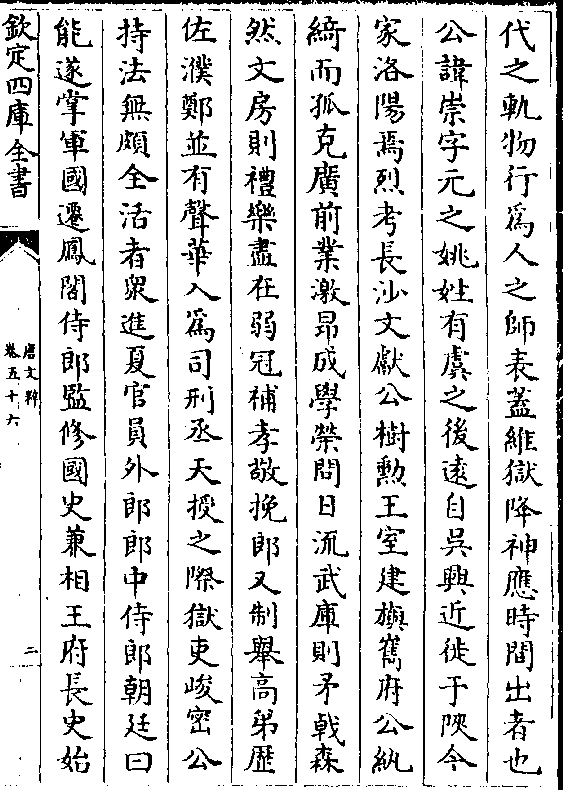 代之軌物行為人之師表蓋維嶽降神應時間出者也
公諱崇字元之姚姓有虞之後遠自吳興近徙于陜今
家洛陽焉烈考長沙文獻公樹勲王室建旟雟府公紈
綺而孤克廣前業激昻成學榮問日流武庫則矛㦸森
然文房則禮樂盡在弱冠補孝敬挽郎又制舉高第歴
佐濮鄭並有聲華入為司刑丞天授之際獄吏峻密公
持法無頗全活者衆進夏官員外郎郎中侍郎朝廷曰
能遂掌軍國遷鳳閣侍郎監修國史兼相王府長史始
欽定四庫全書
唐文粹
卷五十六
二